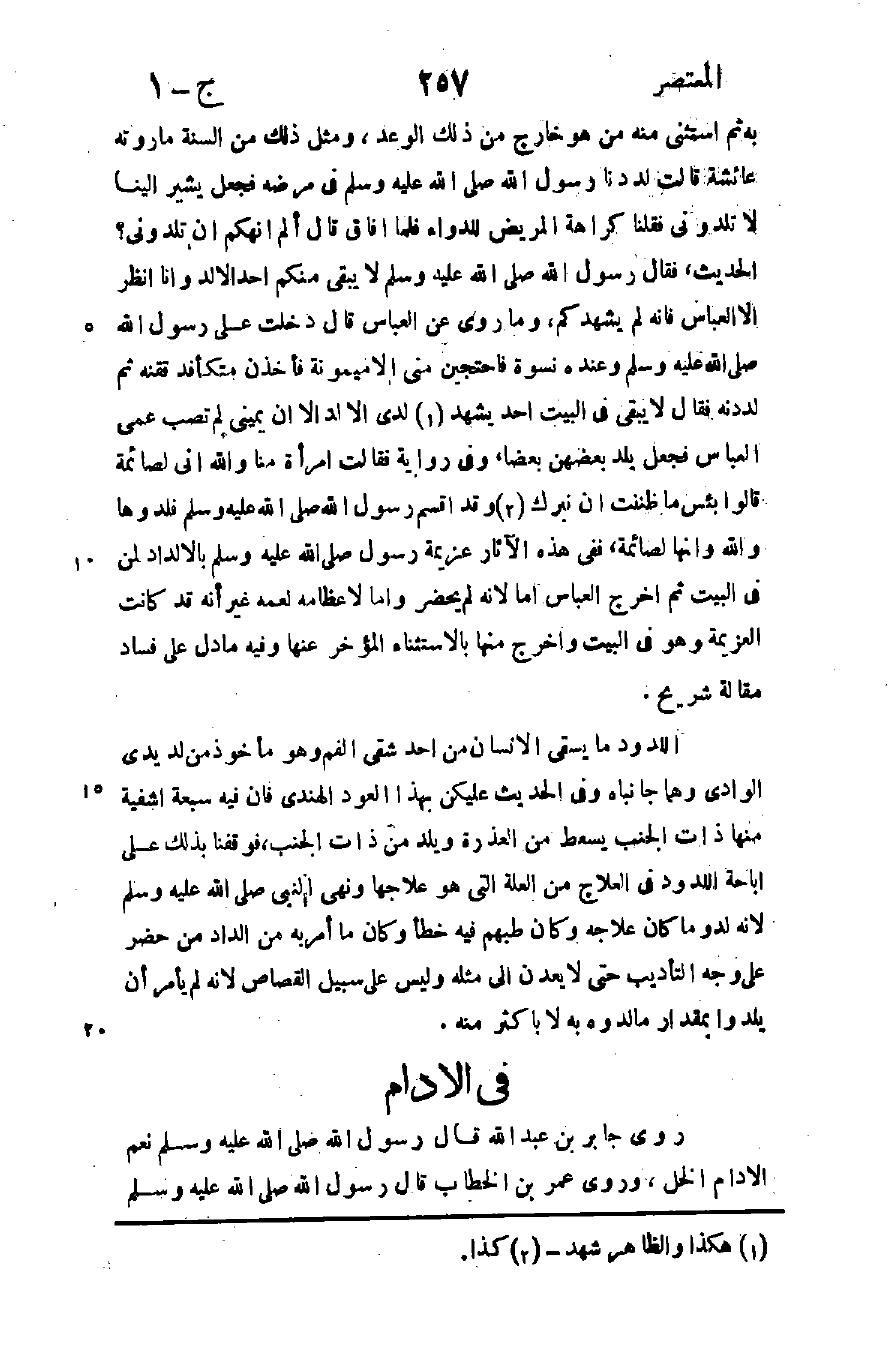 المعتصر ٢٥٧ ج - ١
به ثم استثنى منه من هو خارج من ذلك الوعد، ومثل ذلك من السنة ماروته
عائشة قالت لددنا رسول الله صلى الله عليه وسلم فى مرضه فجعل يشير الينا
لا تلدونى فقلنا كراهة المريض للدواء فلما افاق قال ألم انهكم ان تلدونى؟
الحديث، فقال رسول الله صلى الله عليه وسلم لا يبقى منكم احد الالد وانا انظر
الا العباس فانه لم يشهدكم، وما روى عن العباس قال دخلت على رسول الله ٥
صلى الله عليه وسلم وعنده نسوة فاحتجبن منى الا ميمونة فأخذن متكأ فدققنه ثم
لددنه فقال لا يبقى فى البيت احد يشهد (١) لدى الا لد الا ان يمينى لم تصب عمى
العباس فجعل يلد بعضهن بعضا، وفى رواية فقالت امرأة منا والله انى لصائمة
قالوا بئس ما ظننت ان نبرك (٢) وقد اقسم رسول الله صلى الله عليه وسلم فلدوها
والله وانها لصائمة، ففى هذه الآثار عزيمة رسول صلى الله عليه وسلم بالالداد لمن ١٠
فى البيت ثم اخرج العباس اما لانه لم يحضر واما لاعظامه لعمه غير أنه قد كانت
العزيمة وهو فى البيت واخرج منها بالاستثناء المؤخر عنها وفيه مادل على فساد
مقالة شريح.
اللدود ما يسقى الانسان من احد شقى الفم وهو مأخوذ من لديدى
الوادى وهما جانباه وفى الحديث عليكن بهذا العود الهندى فان فيه سبعة اشفية ١٥
منها ذات الجنب يسعط من العذرة ويلد من ذات الجنب، فوقفنا بذلك على
اباحة اللدود فى العلاج من العلة التى هو علاجها ونهى النبى صلى الله عليه وسلم
لانه لدو ما كان علاجه وكان طبهم فيه خطأ وكان ما أمر به من الداد من حضر
على وجه التأديب حتى لا يعدن الى مثله وليس على سبيل القصاص لانه لم يأمر أن
يلدوا بمقدار مالدوه به لا باكثر منه. ٢٠
فى الادام
روى جابر بن عبد الله قال رسول الله صلى الله عليه وسلم نعم
الادام الخل، وروى عمر بن الخطاب قال رسول الله صلى الله عليه وسلم
(١) هكذا والظاهر شهد - (٢) كذا.